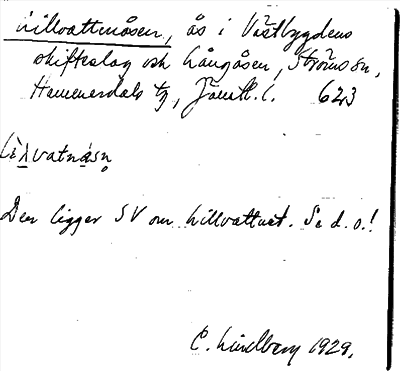 Lillvattmåsen, ås i Västbygdens
skifteslag och Långåsen, Ströms sn,
Hammerdals tg, Jämtl. l. 623
Lillvattnet. Se d. o.!
Den ligger SV om
C. Lindberg 1929.